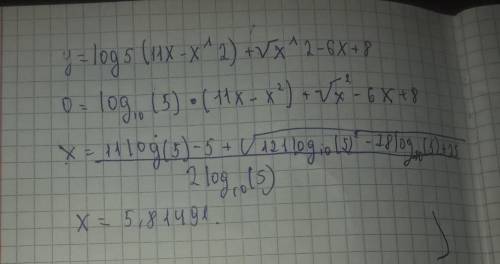 y = log 5 (11x - x^2) + √x^2 - 6x + 8
0 = log₁₀(5) • (11x - x²) + √x² - 6x + 8
x = 11 log(5) - 5 + √121 log₁₀(5)² - 28 log₁₀(5) + 25
2 log₁₀(5)
x = 5,81491.